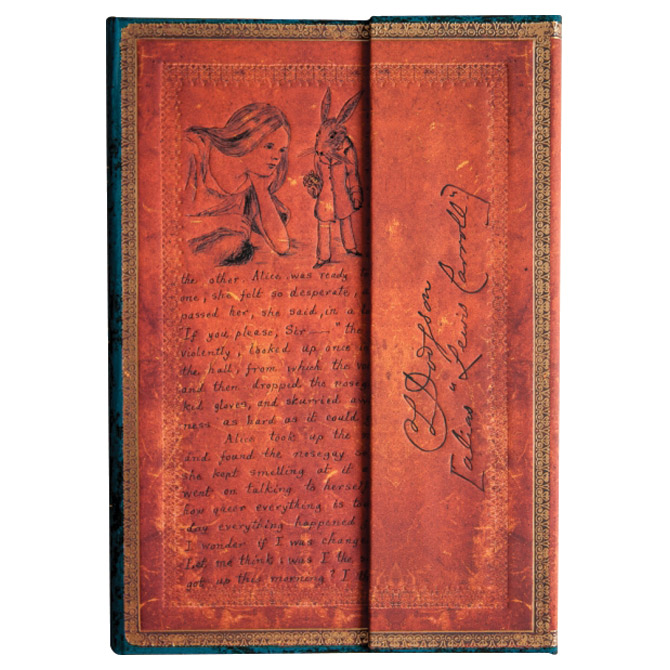 the other. Alice was ready
one, she felt so desperate,
passed her, she said, in a
"If you please, Sir —" the
violently, looked up once
the hall, from which the
and then dropped the
kid gloves, and skurried
ness as hard as it could
Alice took up the
and found the nosegay
she kept smelling at it
went on talking to herself
how queer everything is
day everything happened
I wonder if I was
Let me think: was I the
got up this morning? I
C L Dodgson
[alias "Lewis Carroll"]